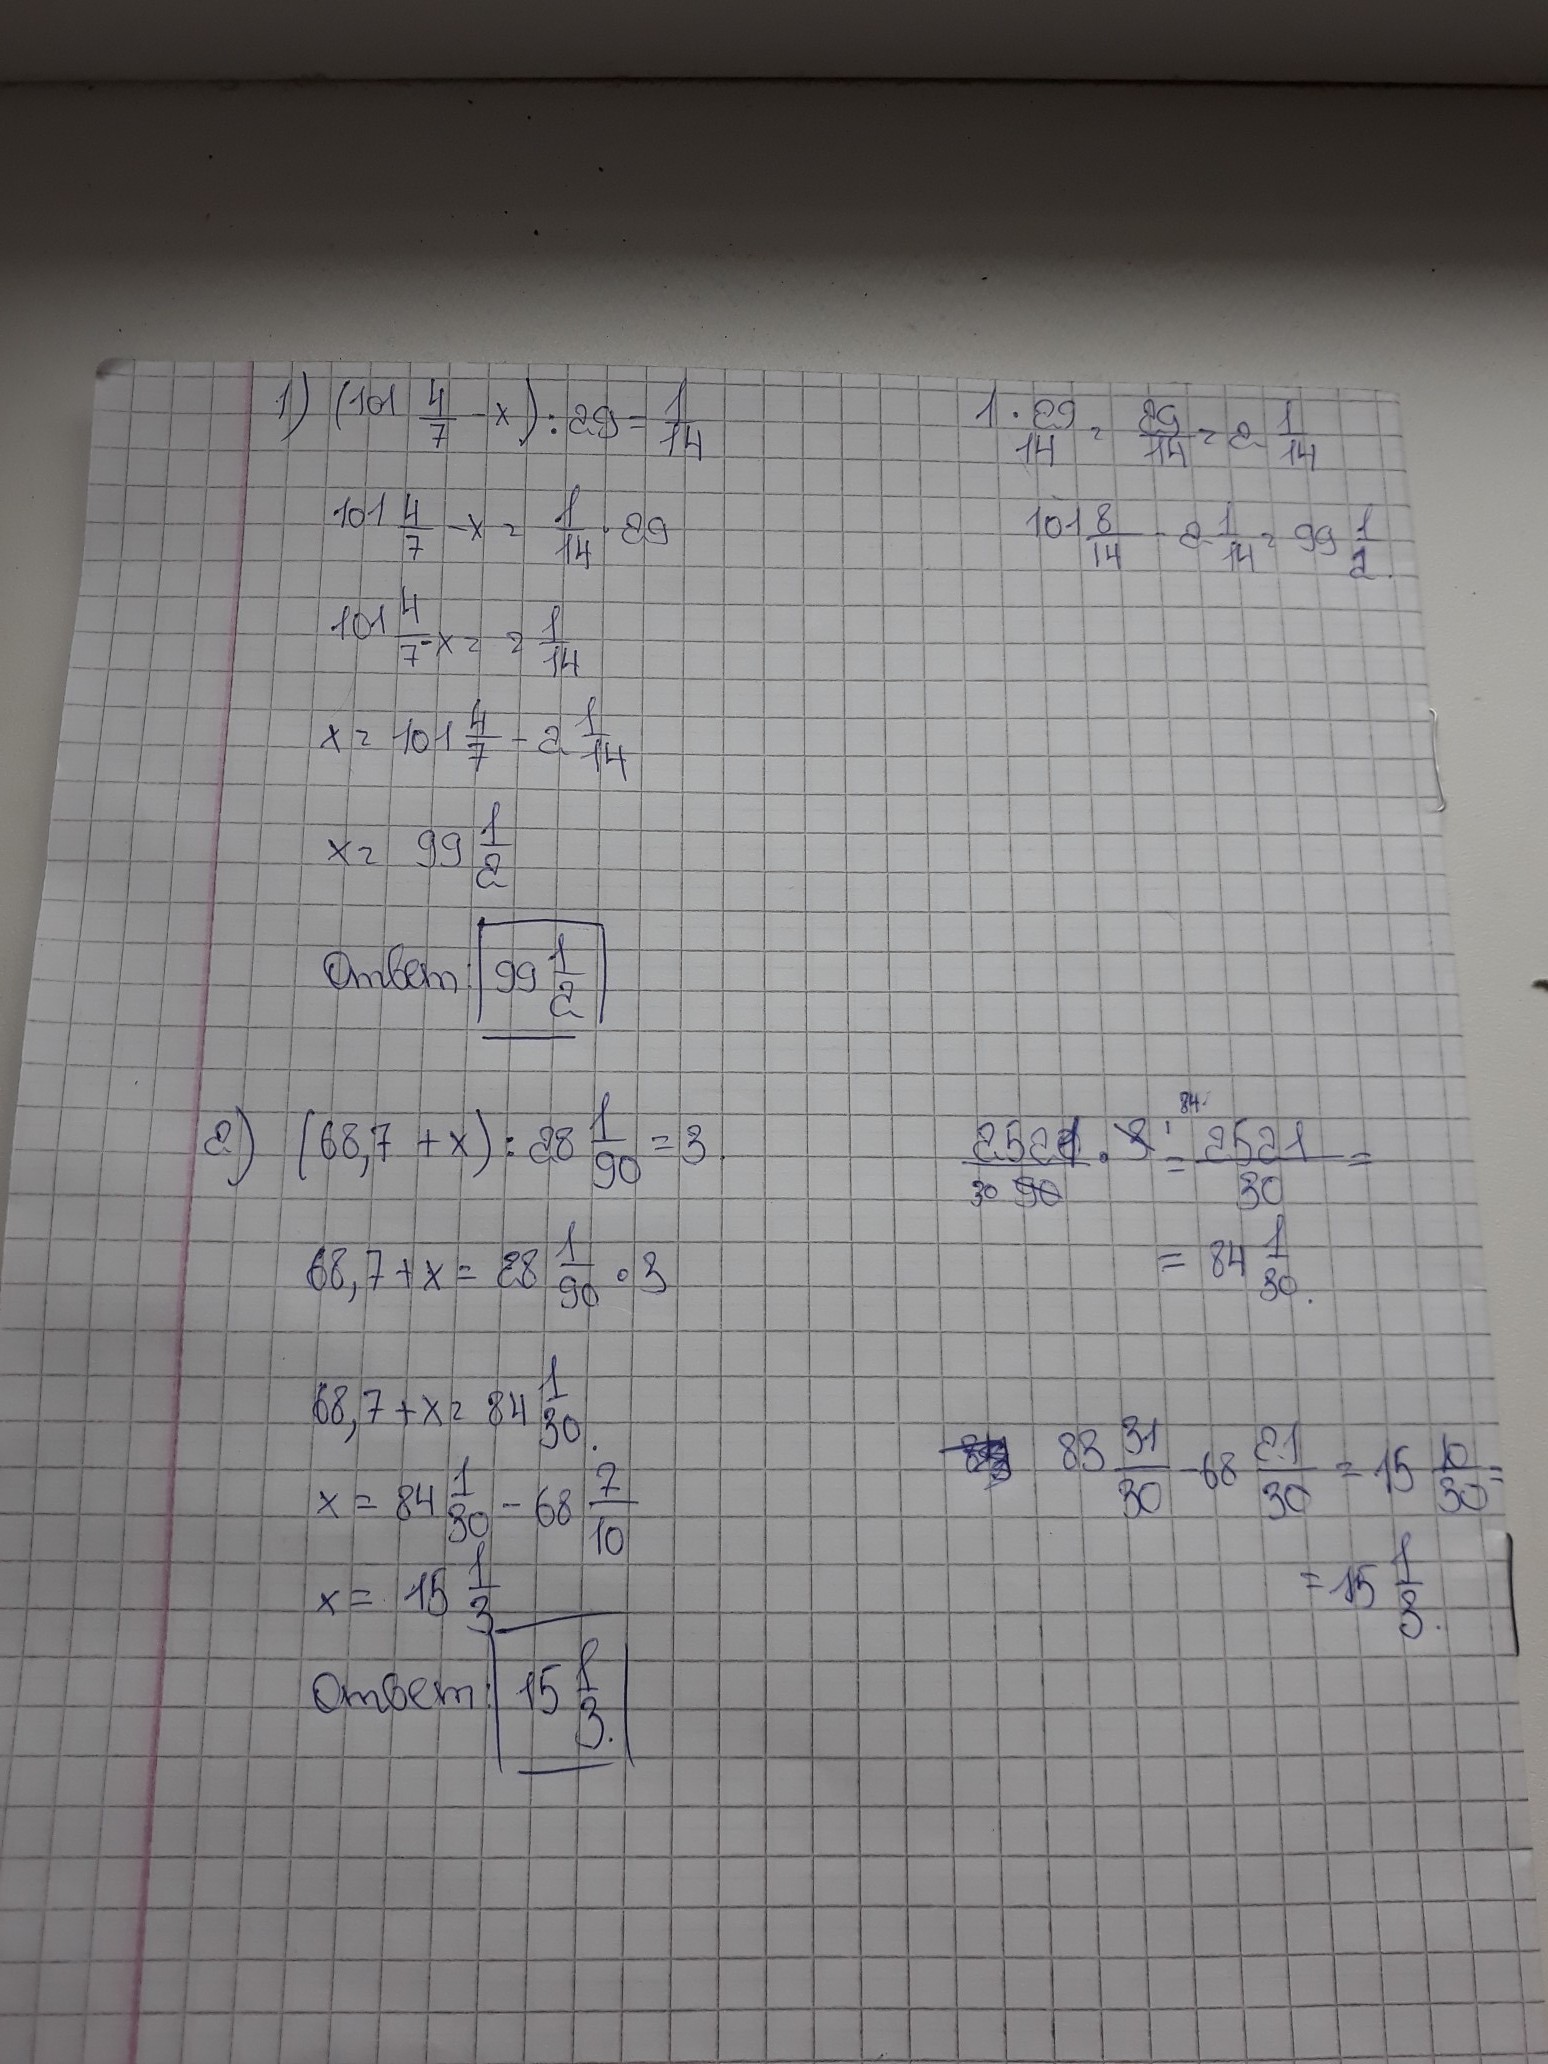 1) (101 4/7 - x) : 29 = 1/14
101 4/7 - x = 1/14 · 29
101 4/7 - x = 2 1/14
x = 101 4/7 - 2 1/14
x = 99 1/2
Ответ: 99 1/2
1 · 29/14 = 29/14 = 2 1/14
101 8/14 - 2 1/14 = 99 1/2.
2) (68,7 + x) : 28 1/90 = 3.
68,7 + x = 28 1/90 · 3
68,7 + x = 84 1/30.
x = 84 1/30 - 68 7/10
x = 15 1/3
Ответ: 15 1/3.
84.
2521/30 90 · 3 1 = 2521/30 =
= 84 1/30.
83 31/30 - 68 21/30 = 15 10/30 =
= 15 1/3.